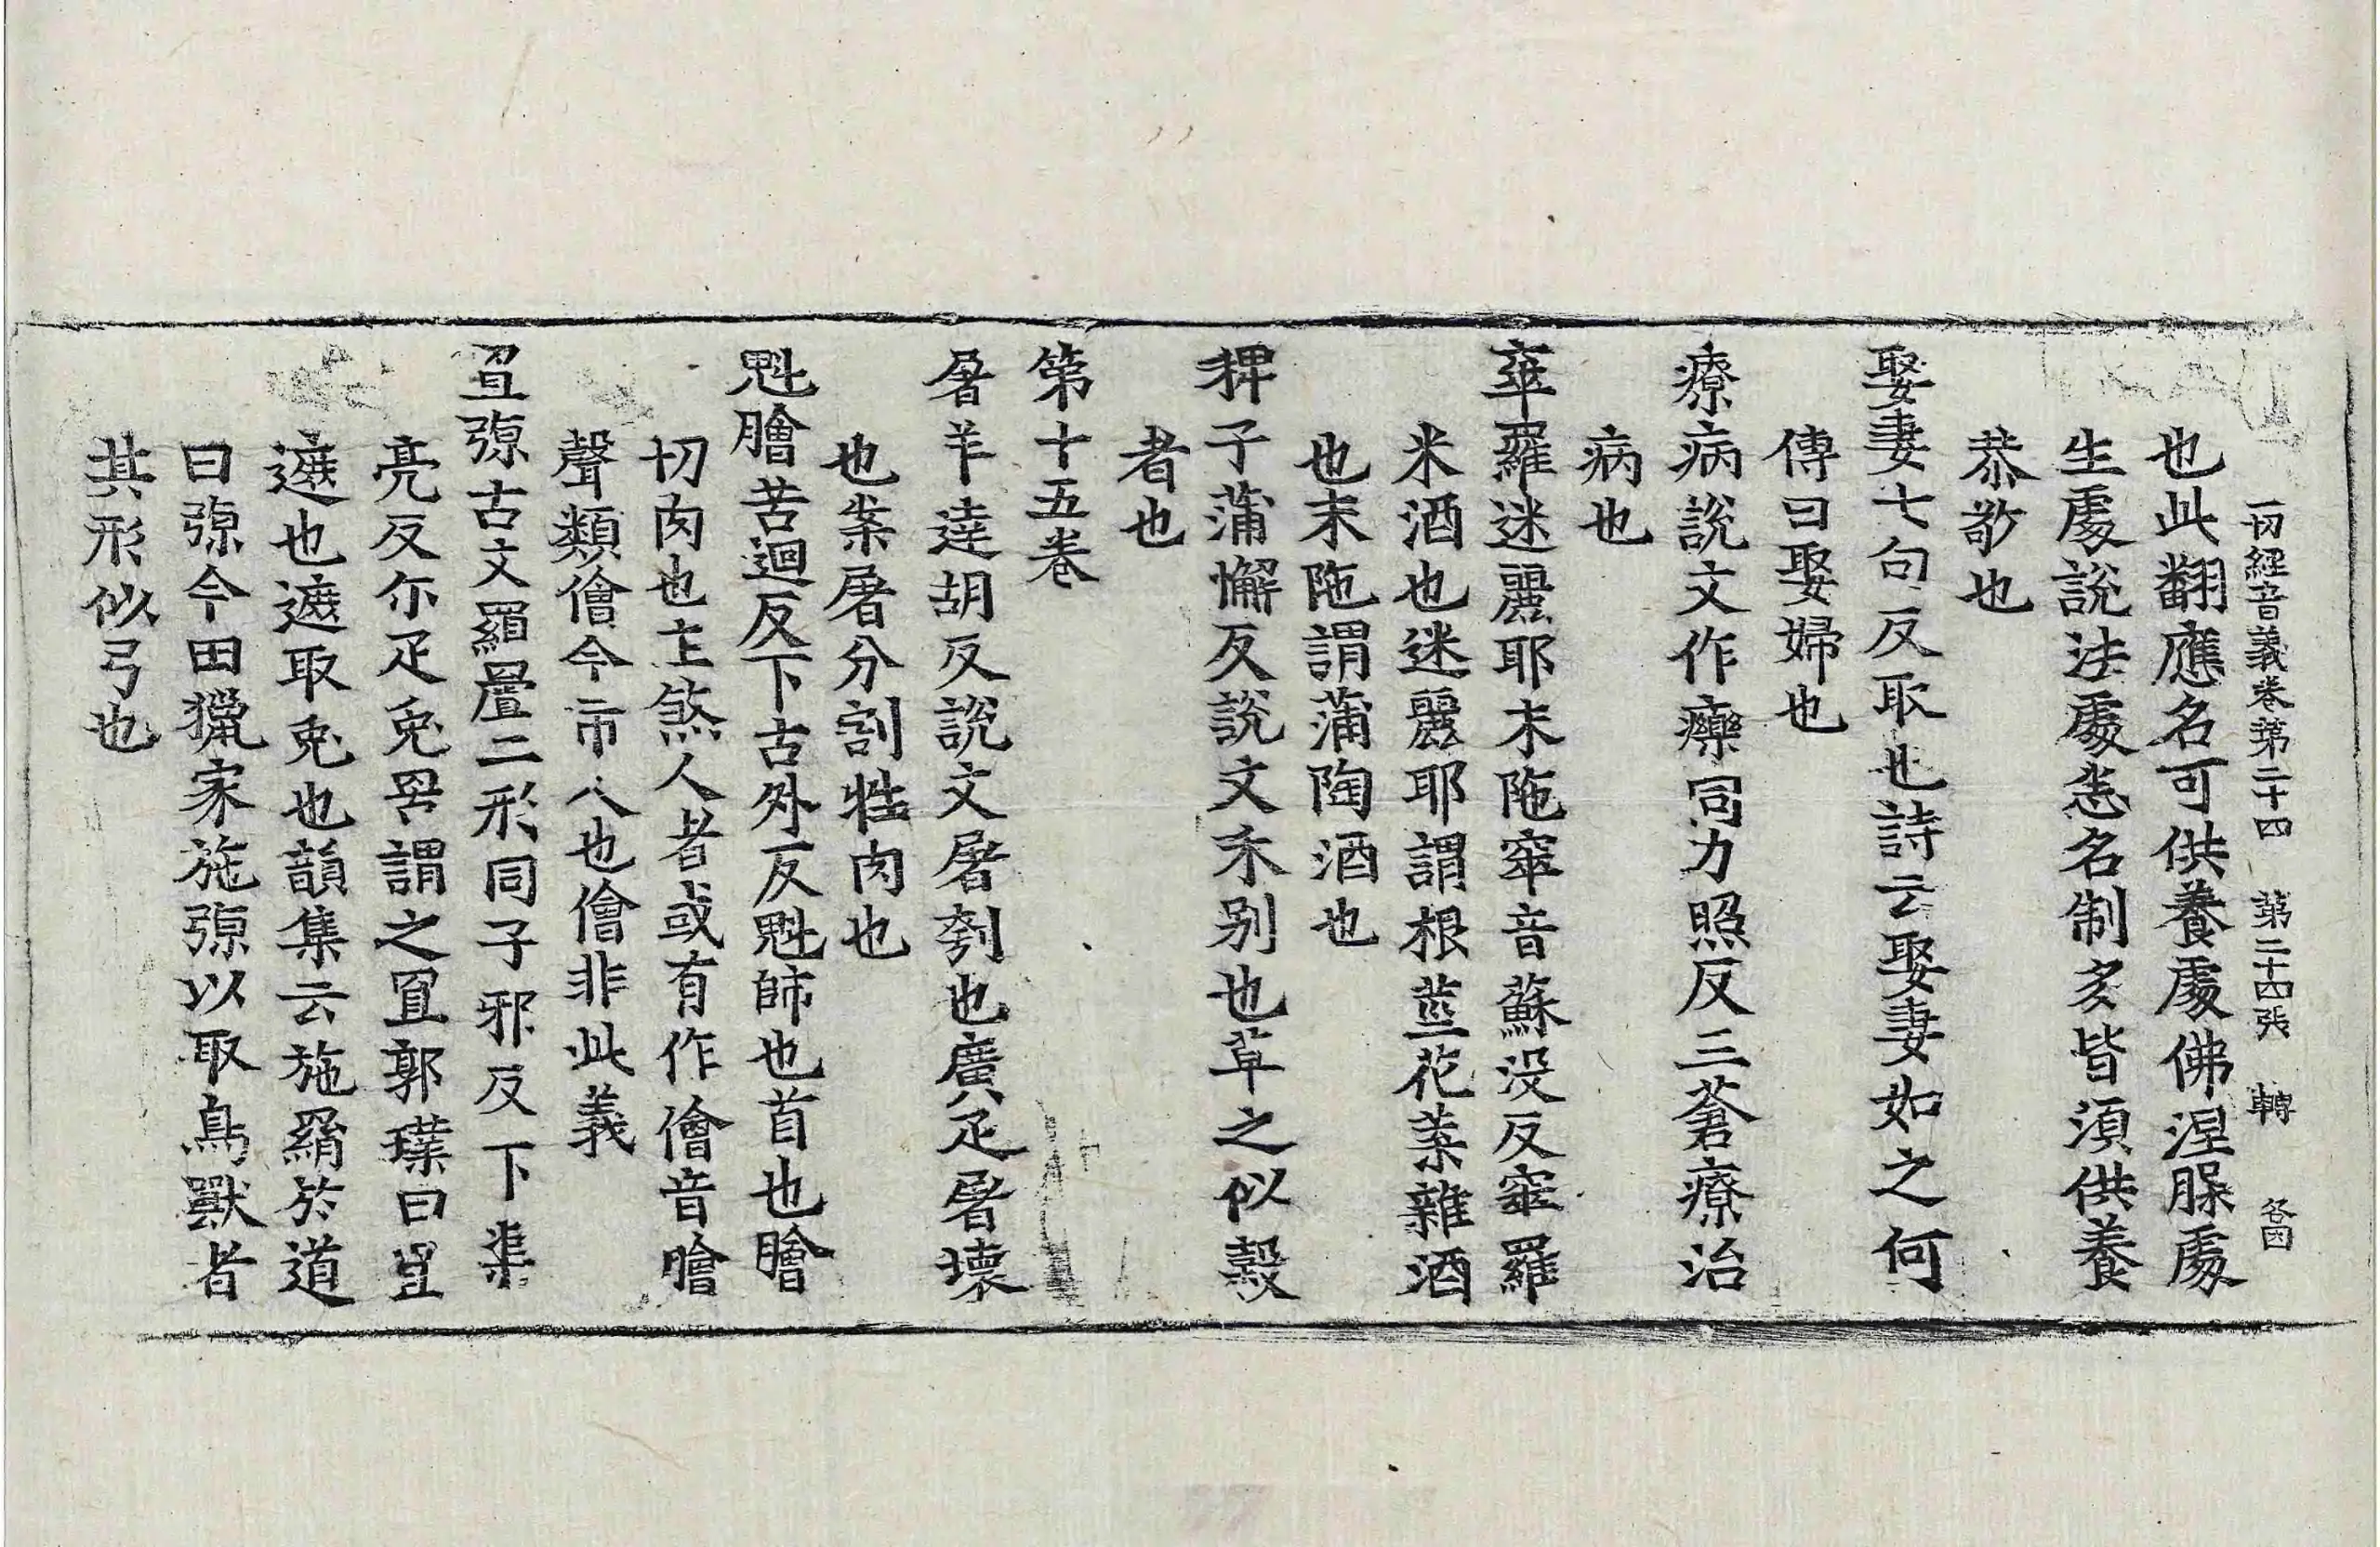 一切經音義卷第二十四 第二十四張 轉
也此翻應名可供養處佛涅縣處
生處說法處悉名制多皆湏供養
恭敬也
娶妻七句反取也詩云娶妻如之何
傳曰娶婦也
療病說文作𤻲同力照反三蒼療治
病也
窣羅迷麗耶末陁窣音蘇没反窣羅
米酒也迷麗耶謂根莖花葉雜酒
也末陁謂蒲陶酒也
稗子蒲懈反說文禾别也草之似糓
者也
第十五卷
屠羊達胡反說文屠刳也廣疋屠壞
也案屠分割牲肉也
魁膾苦迴反下古外反魁師也首也膾
切肉也主煞人者或有作儈音膾
聲類儈今市人也儈非此義
罝弶古文罝二形同子邪反下渠
亮反尒疋兔罟謂之罝郭璞曰罝
遮也遮取兔也韻集云施罥於道
曰弶今田獵家施弶以取鳥獸者
其形似弓也